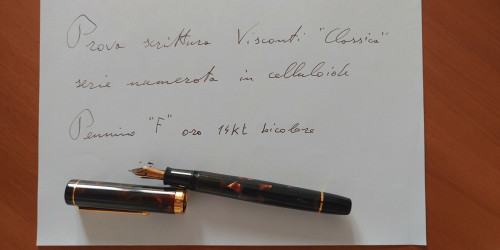 Prova scrittura Visconti "Classica"
serie numerota in celluloide
Pennino "F" oro 14kt bicolore